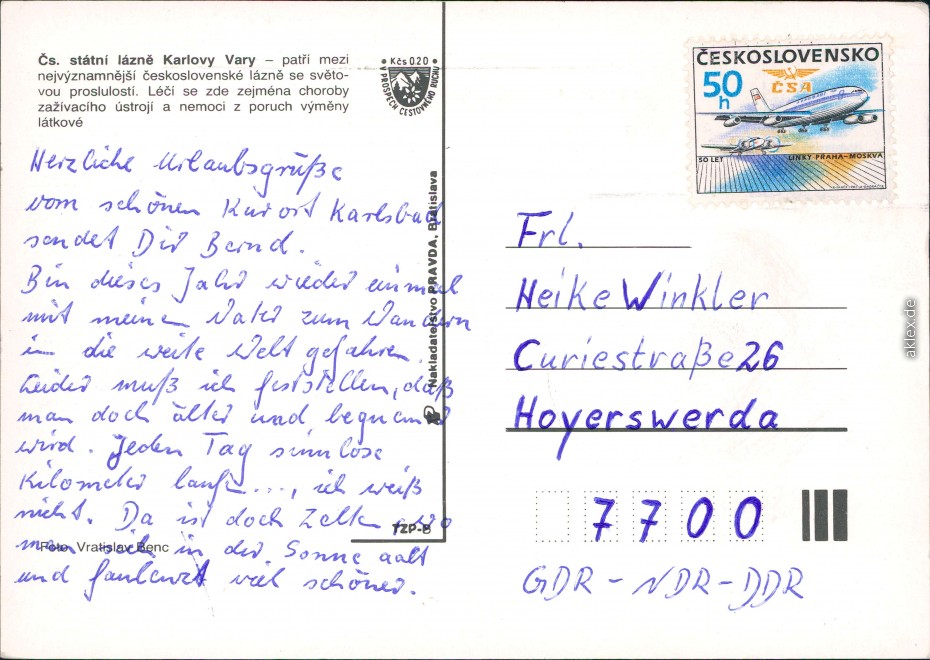 Čs. státní lázně Karlovy Vary – patří mezi
nejvýznamnější československé lázně se světo-
vou proslulostí. Léčí se zde zejména choroby
zažívacího ústrojí a nemoci z poruch výměny
látkové
Kčs 020
V PROSPĚCH CESTOVNÉHO RUCHU
Herzliche Urlaubsgrüße
vom schönen Kurort Karlsbad
sendet Dir Bernd.
Bin dieses Jahr wieder einmal
mit meinem Vater zum Wandern
in die weite Welt gefahren.
Leider muß ich feststellen, daß
man doch älter und bequemer
wird. Jeden Tag sinnlose
Kilometer laufen..., ich weiß
nicht. Da ist doch Zelten, wo
man sich in der Sonne aalt
und faulenzt viel schöner.
Foto: Vratislav Benc
TZP-B
Nakladatelstvo PRAVDA, Bratislava
ČESKOSLOVENSKO
50
h
ČSA
50 LET LINKY PRAHA–MOSKVA
Frl.
Heike Winkler
Curiestraße 26
Hoyerswerda
7700
GDR – NDR – DDR
aklex.de